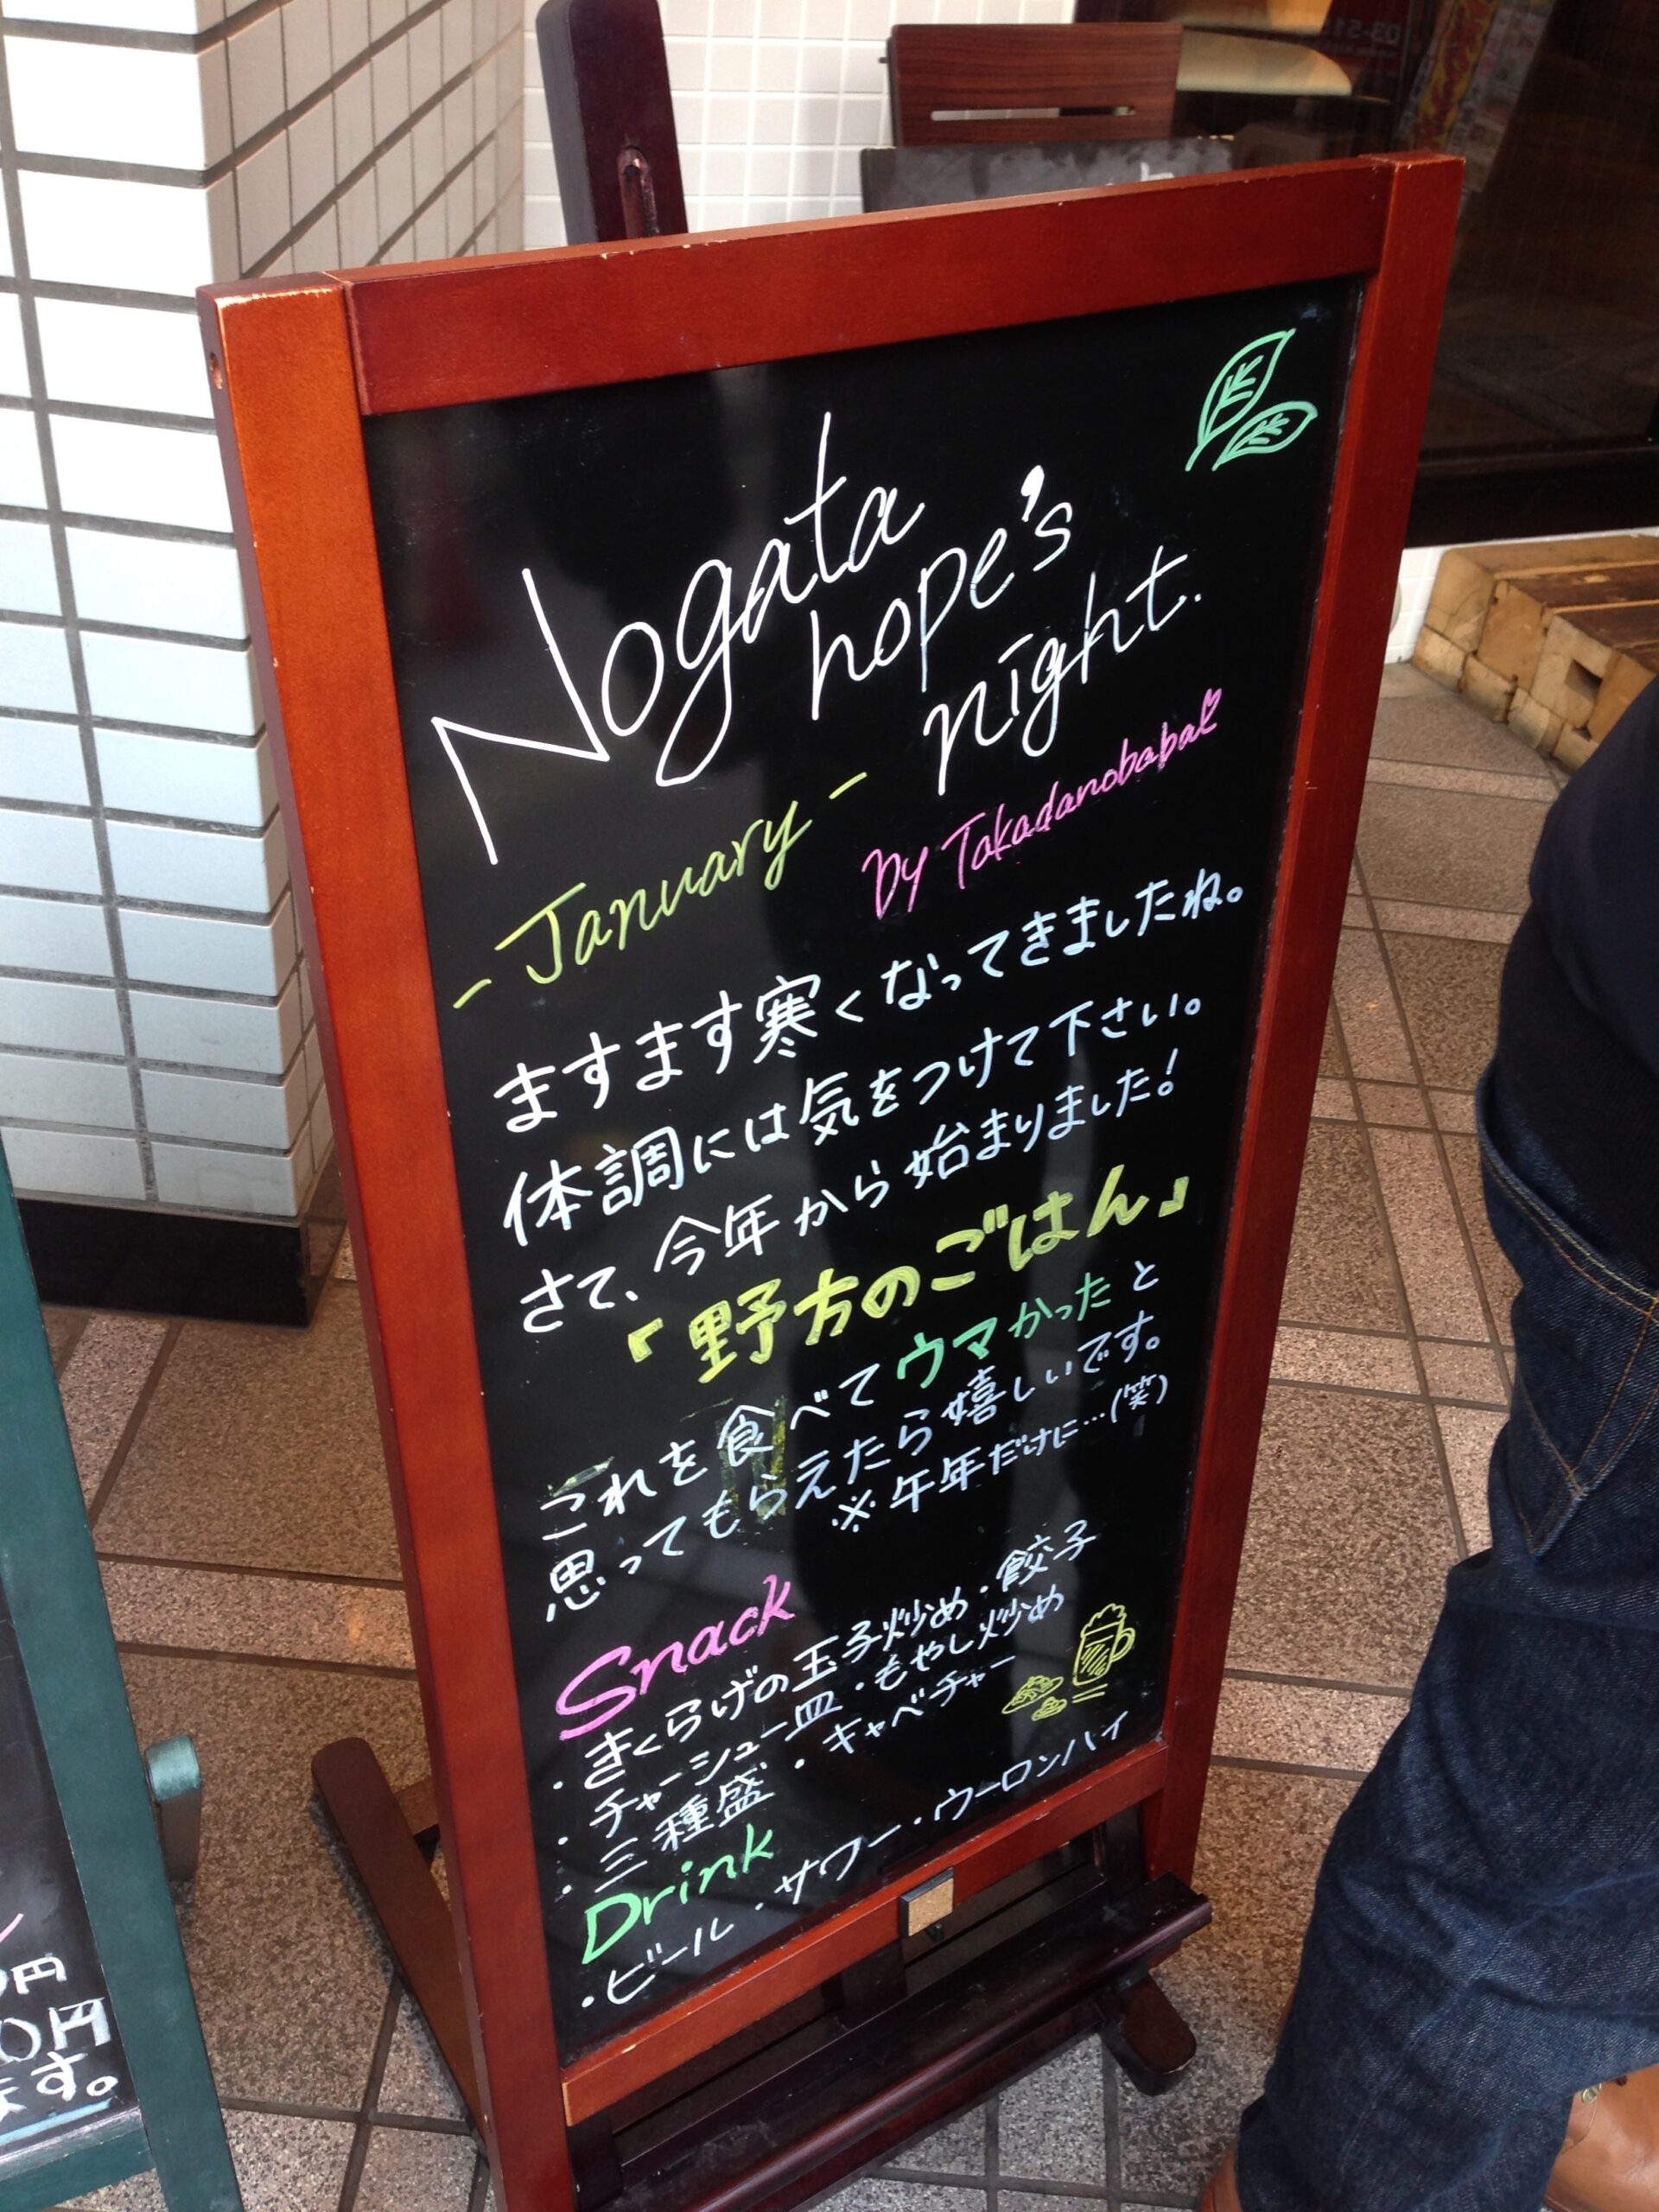 Nogata
hope's
night.
- January -
by Takadanobaba
ますます寒くなってきましたね。
体調には気をつけて下さい。
さて、今年から始まりました!
「野方のごはん」
これを食べてウマかったと
思ってもらえたら嬉しいです。
※午年だけに…(笑)
Snack
・きくらげの玉子炒め・餃子
・チャーシュー皿・もやし炒め
・三種盛・キャベチャー
Drink
・ビール・サワー・ウーロンハイ
円
0円
ます。
03-51